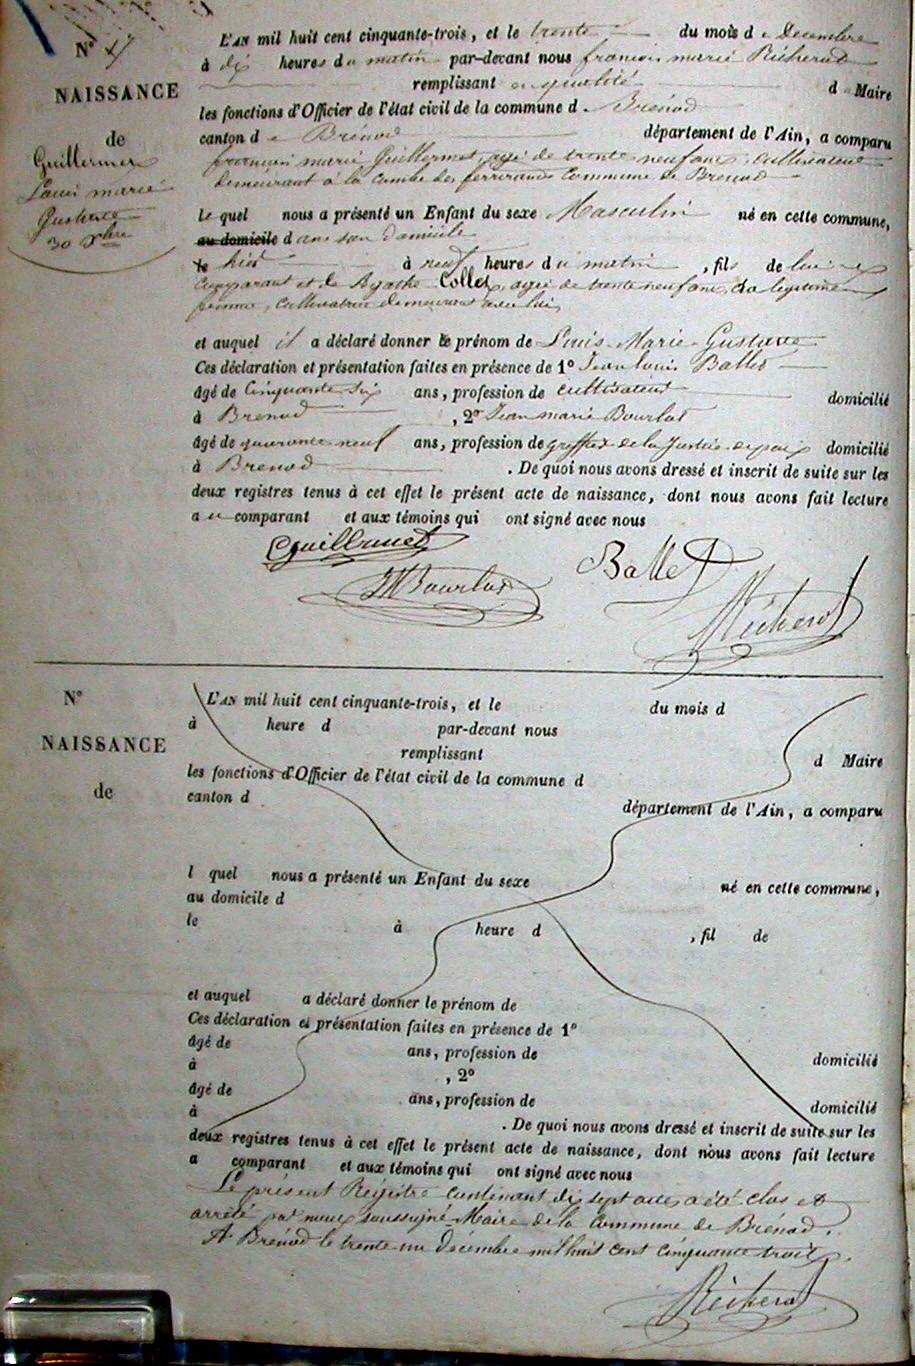 N° 17
NAISSANCE
de
Guillermet
Louis marie
Gustave
30 Xbre
L'AN mil huit cent cinquante-trois, et le trente du mois de Décembre
à dix heures du matin par-devant nous francois marie Richerod
remplissant en qualité de Maire
les fonctions d'Officier de l'état civil de la commune d Brénod
canton de Brénod département de l'Ain, a comparu
francois marie Guillermet agé de trente neuf ans, cultivateur
demeurant à la combe des ferrirands commune de Brenod
Le quel nous a présenté un Enfant du sexe Masculin né en cette commune,
au domicile dans son domicile
le hier à neuf heures du matin, fils de lui
comparant et de Agathe Collet, agée de trente neuf ans, sa légitime
femme, cultivatrice demeurant avec lui,
et auquel il a déclaré donner le prénom de Louis-Marie-Gustave
Ces déclaration et présentation faites en présence de 1° Jean Louis Ballet
âgé de cinquante six ans, profession de cultivateur domicilié
à Brenod, 2° Jean marie Bourlot
âgé de quarante neuf ans, profession de greffier de la Justice de paix domicilié
à Brenod. De quoi nous avons dressé et inscrit de suite sur les
deux registres tenus à cet effet le présent acte de naissance, dont nous avons fait lecture
au comparant et aux témoins qui ont signé avec nous
Guillermet
Ballet
JM Bourlot
Richerod
N°
NAISSANCE
de
L'AN mil huit cent cinquante-trois, et le du mois d
à heure d par-devant nous
remplissant d Maire
les fonctions d'Officier de l'état civil de la commune d
canton d département de l'Ain, a comparu
l quel nous a présenté un Enfant du sexe né en cette commune,
au domicile d
le à heure d , fil de
et auquel a déclaré donner le prénom de
Ces déclaration et présentation faites en présence de 1°
âgé de ans, profession de domicilié
à , 2°
âgé de ans, profession de domicilié
à . De quoi nous avons dressé et inscrit de suite sur les
deux registres tenus à cet effet le présent acte de naissance, dont nous avons fait lecture
a comparant et aux témoins qui ont signé avec nous
Le présent Régistre contenant dix sept actes a été clos et
arrêté par nous soussigné Maire de la Commune de Brénod.
A Brénod le trente un Décembre mil huit cent cinquante trois.
Richerod